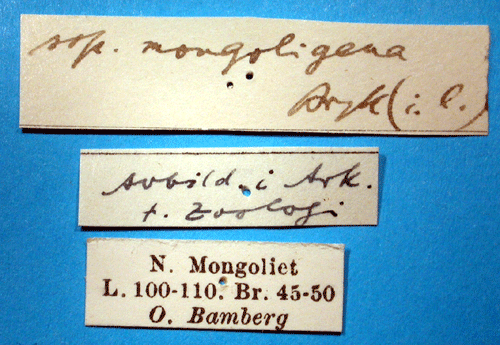 ssp. mongoligena
Bryk (i. l.)
Avbild. i Ark.
f. Zoologi
N. Mongoliet
L. 100-110. Br. 45-50
O. Bamberg